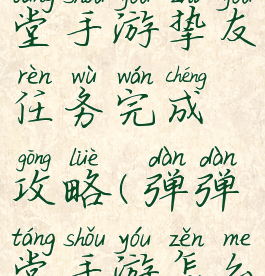 táng shǒu yóu zhì yǒu
堂手游挚友
rèn wù wán chéng
任务完成
gōng lüè dàn dàn
攻略(弹弹
táng shǒu yóu zěn me
堂手游怎么